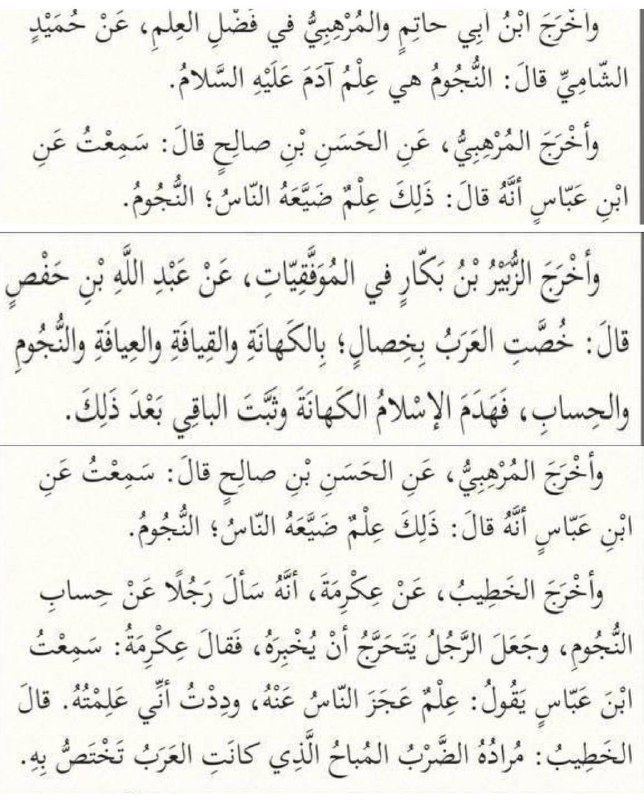 وأخْرَجَ ابْنُ أبِي حاتِمٍ والمُرْهِبِيُّ في فَضْلِ العِلْمِ، عَنْ حُمَيْدٍ
الشّامِيِّ قالَ: النُّجُومُ هي عِلْمُ آدَمَ عَلَيْهِ السَّلامُ.
وأخْرَجَ المُرْهِبِيُّ، عَنِ الحَسَنِ بْنِ صالِحٍ قالَ: سَمِعْتُ عَنِ
ابْنِ عَبّاسٍ أنَّهُ قالَ: ذَلِكَ عِلْمٌ ضَيَّعَهُ النّاسُ؛ النُّجُومُ.
وأخْرَجَ الزُّبَيْرُ بْنُ بَكّارٍ في المُوَفَّقِيّاتِ، عَنْ عَبْدِ اللَّهِ بْنِ حَفْصٍ
قالَ: خُصَّتِ العَرَبُ بِخِصالٍ؛ بِالكَهانَةِ والقِيافَةِ والعِيافَةِ والنُّجُومِ
والحِسابِ، فَهَدَمَ الإسْلامُ الكَهانَةَ وثَبَّتَ الباقِي بَعْدَ ذَلِكَ.
وأخْرَجَ المُرْهِبِيُّ، عَنِ الحَسَنِ بْنِ صالِحٍ قالَ: سَمِعْتُ عَنِ
ابْنِ عَبّاسٍ أنَّهُ قالَ: ذَلِكَ عِلْمٌ ضَيَّعَهُ النّاسُ؛ النُّجُومُ.
وأخْرَجَ الخَطِيبُ، عَنْ عِكْرِمَةَ، أنَّهُ سَألَ رَجُلًا عَنْ حِسابِ
النُّجُومِ، وجَعَلَ الرَّجُلُ يَتَحَرَّجُ أنْ يُخْبِرَهُ، فَقالَ عِكْرِمَةُ: سَمِعْتُ
ابْنَ عَبّاسٍ يَقُولُ: عِلْمٌ عَجَزَ النّاسُ عَنْهُ، ودِدْتُ أنِّي عَلِمْتُهُ. قالَ
الخَطِيبُ: مُرادُهُ الضَّرْبُ المُباحُ الَّذِي كانَتِ العَرَبُ تَخْتَصُّ بِهِ.